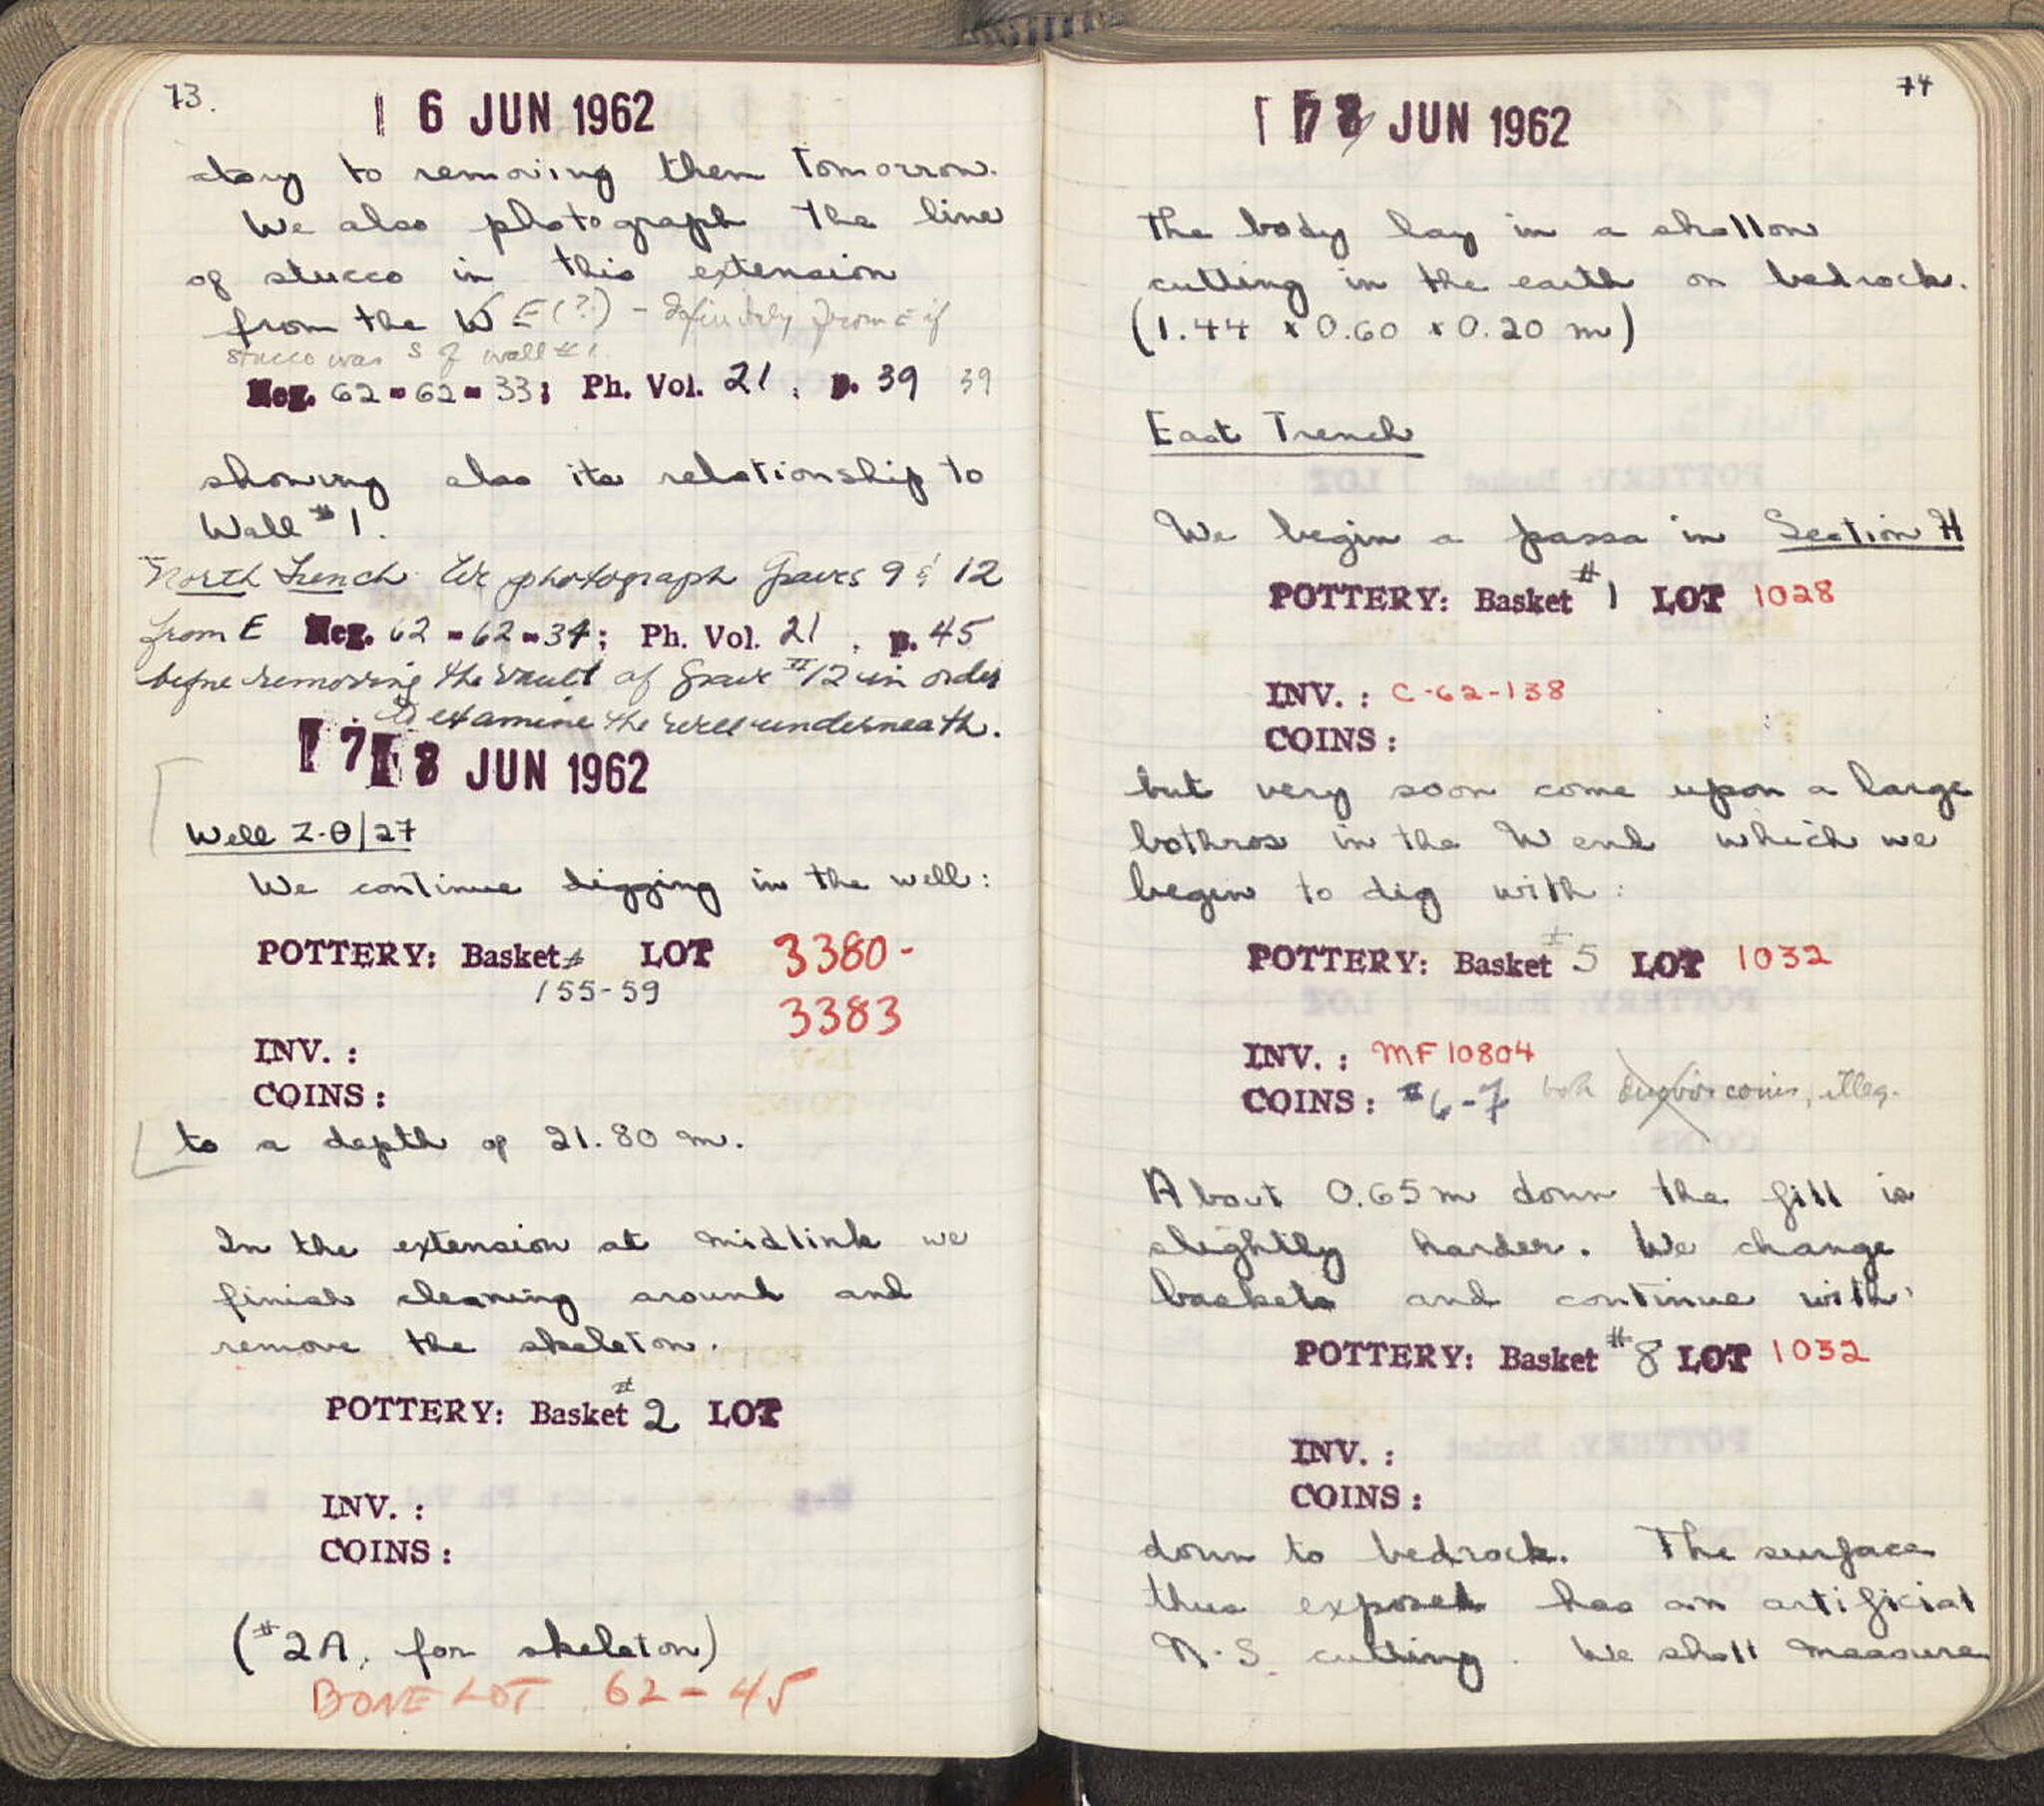 73.
16 JUN 1962
atory to removing them tomorrow.
We also photograph the line
of stucco in this extension
from the W E(?) - definitely from E if
stucco was S of wall #1.
Neg. 62-62-33; Ph. Vol. 21, p. 39 39
showing also its relationship to
Wall #1.
North Trench We photograph Graves 9 & 12
from E Neg. 62-62-34; Ph. Vol. 21, p. 45
before removing the vault of Grave #12 in order
to examine the well underneath.
17 18 JUN 1962
Well Z-Θ/27
We continue digging in the well:
POTTERY: Basket # LOT 3380-
155-59 3383
INV.:
COINS:
to a depth of 21.80 m.
In the extension at midlink we
finish cleaning around and
remove the skeleton.
POTTERY: Basket #2 LOT
INV.:
COINS:
(#2A, for skeleton)
BONE LOT 62-45
74
17 JUN 1962
The body lay in a shallow
cutting in the earth on bedrock.
(1.44 x 0.60 x 0.20 m)
East Trench
We begin a passa in Section H
POTTERY: Basket #1 LOT 1028
INV.: C-62-138
COINS:
but very soon come upon a large
bothros in the W end which we
begin to dig with:
POTTERY: Basket #5 LOT 1032
INV.: MF10804
COINS: #6-7 both coins, illeg.
About 0.65m down the fill is
slightly harder. We change
baskets and continue with:
POTTERY: Basket #8 LOT 1032
INV.:
COINS:
down to bedrock. The surface
thus exposed has an artificial
N-S cutting. We shall measure